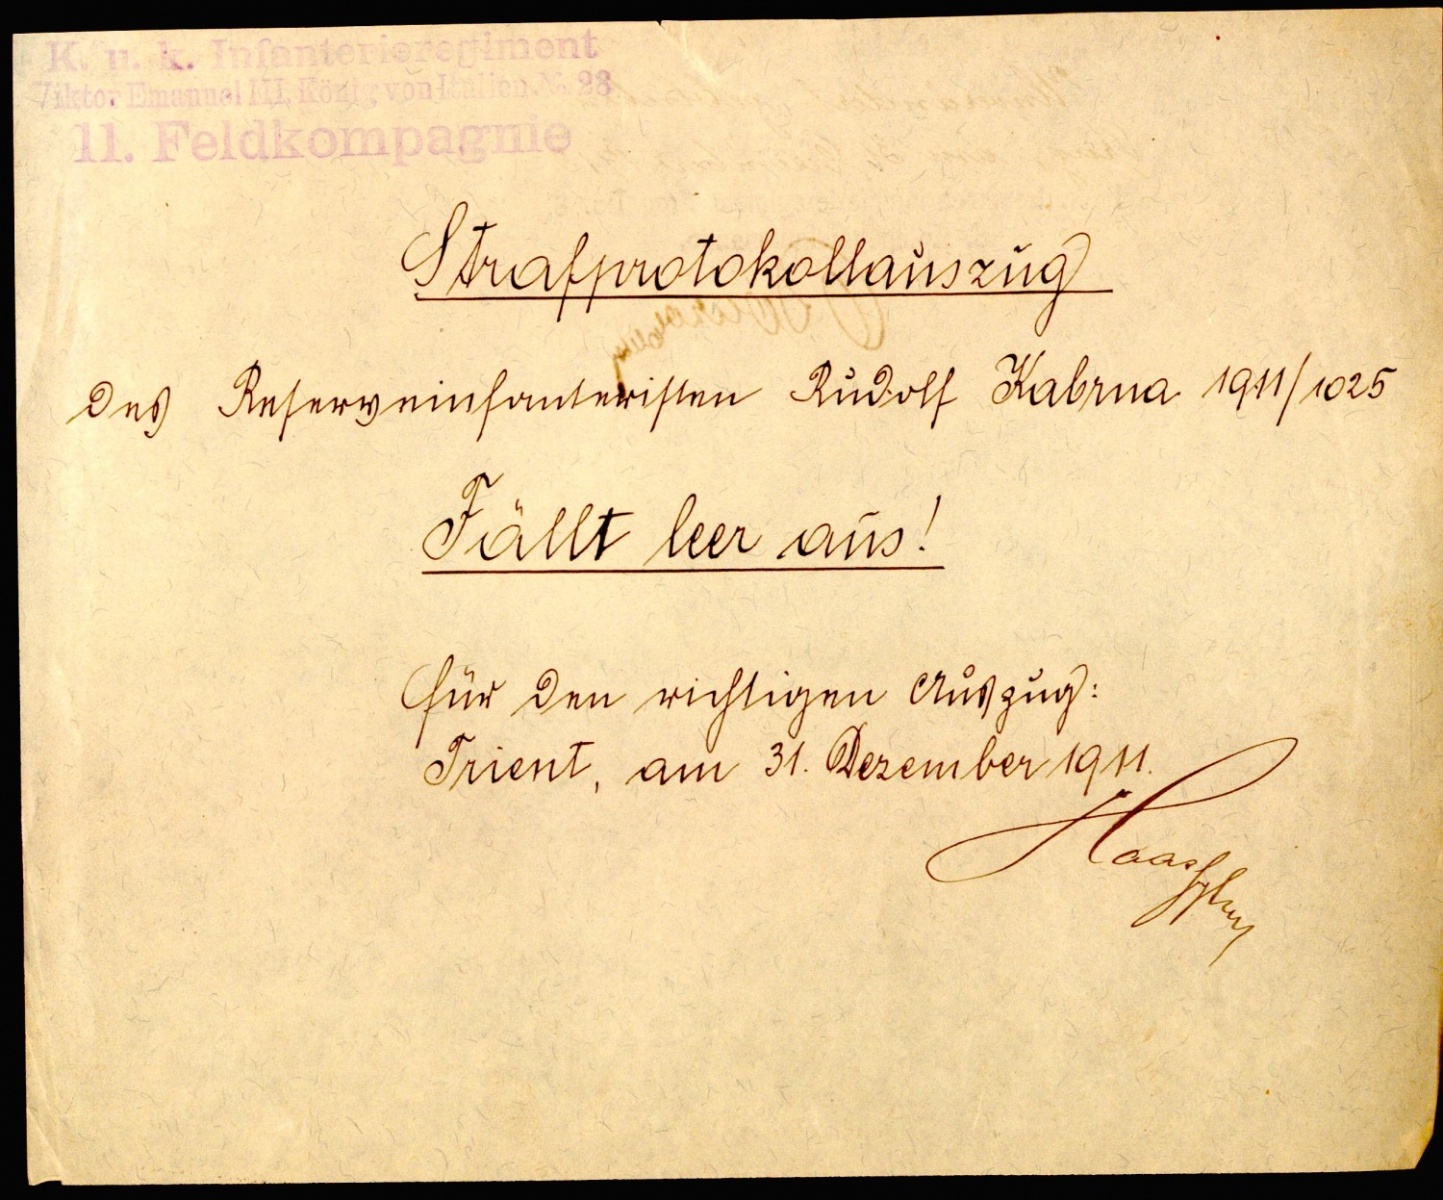 K. u. k. Infanterieregiment
Viktor Emanuel III, König von Italien № 28
11. Feldkompagnie
Strafprotokollauszug
des Reserveinfanteristen Rudolf Kabrna 1911/1025
Fällt leer aus!
für den richtigen Auszug:
Trient, am 31. Dezember 1911.
Haas